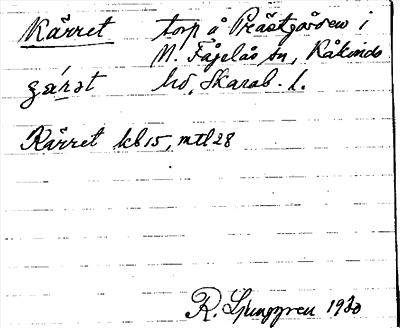 Kärret torp å Prästgården i
N. Fågelås sn, Kåkinds
hd, Skarab. l.
Kärret kb 15, mtl 28
R. Ljunggren 1930